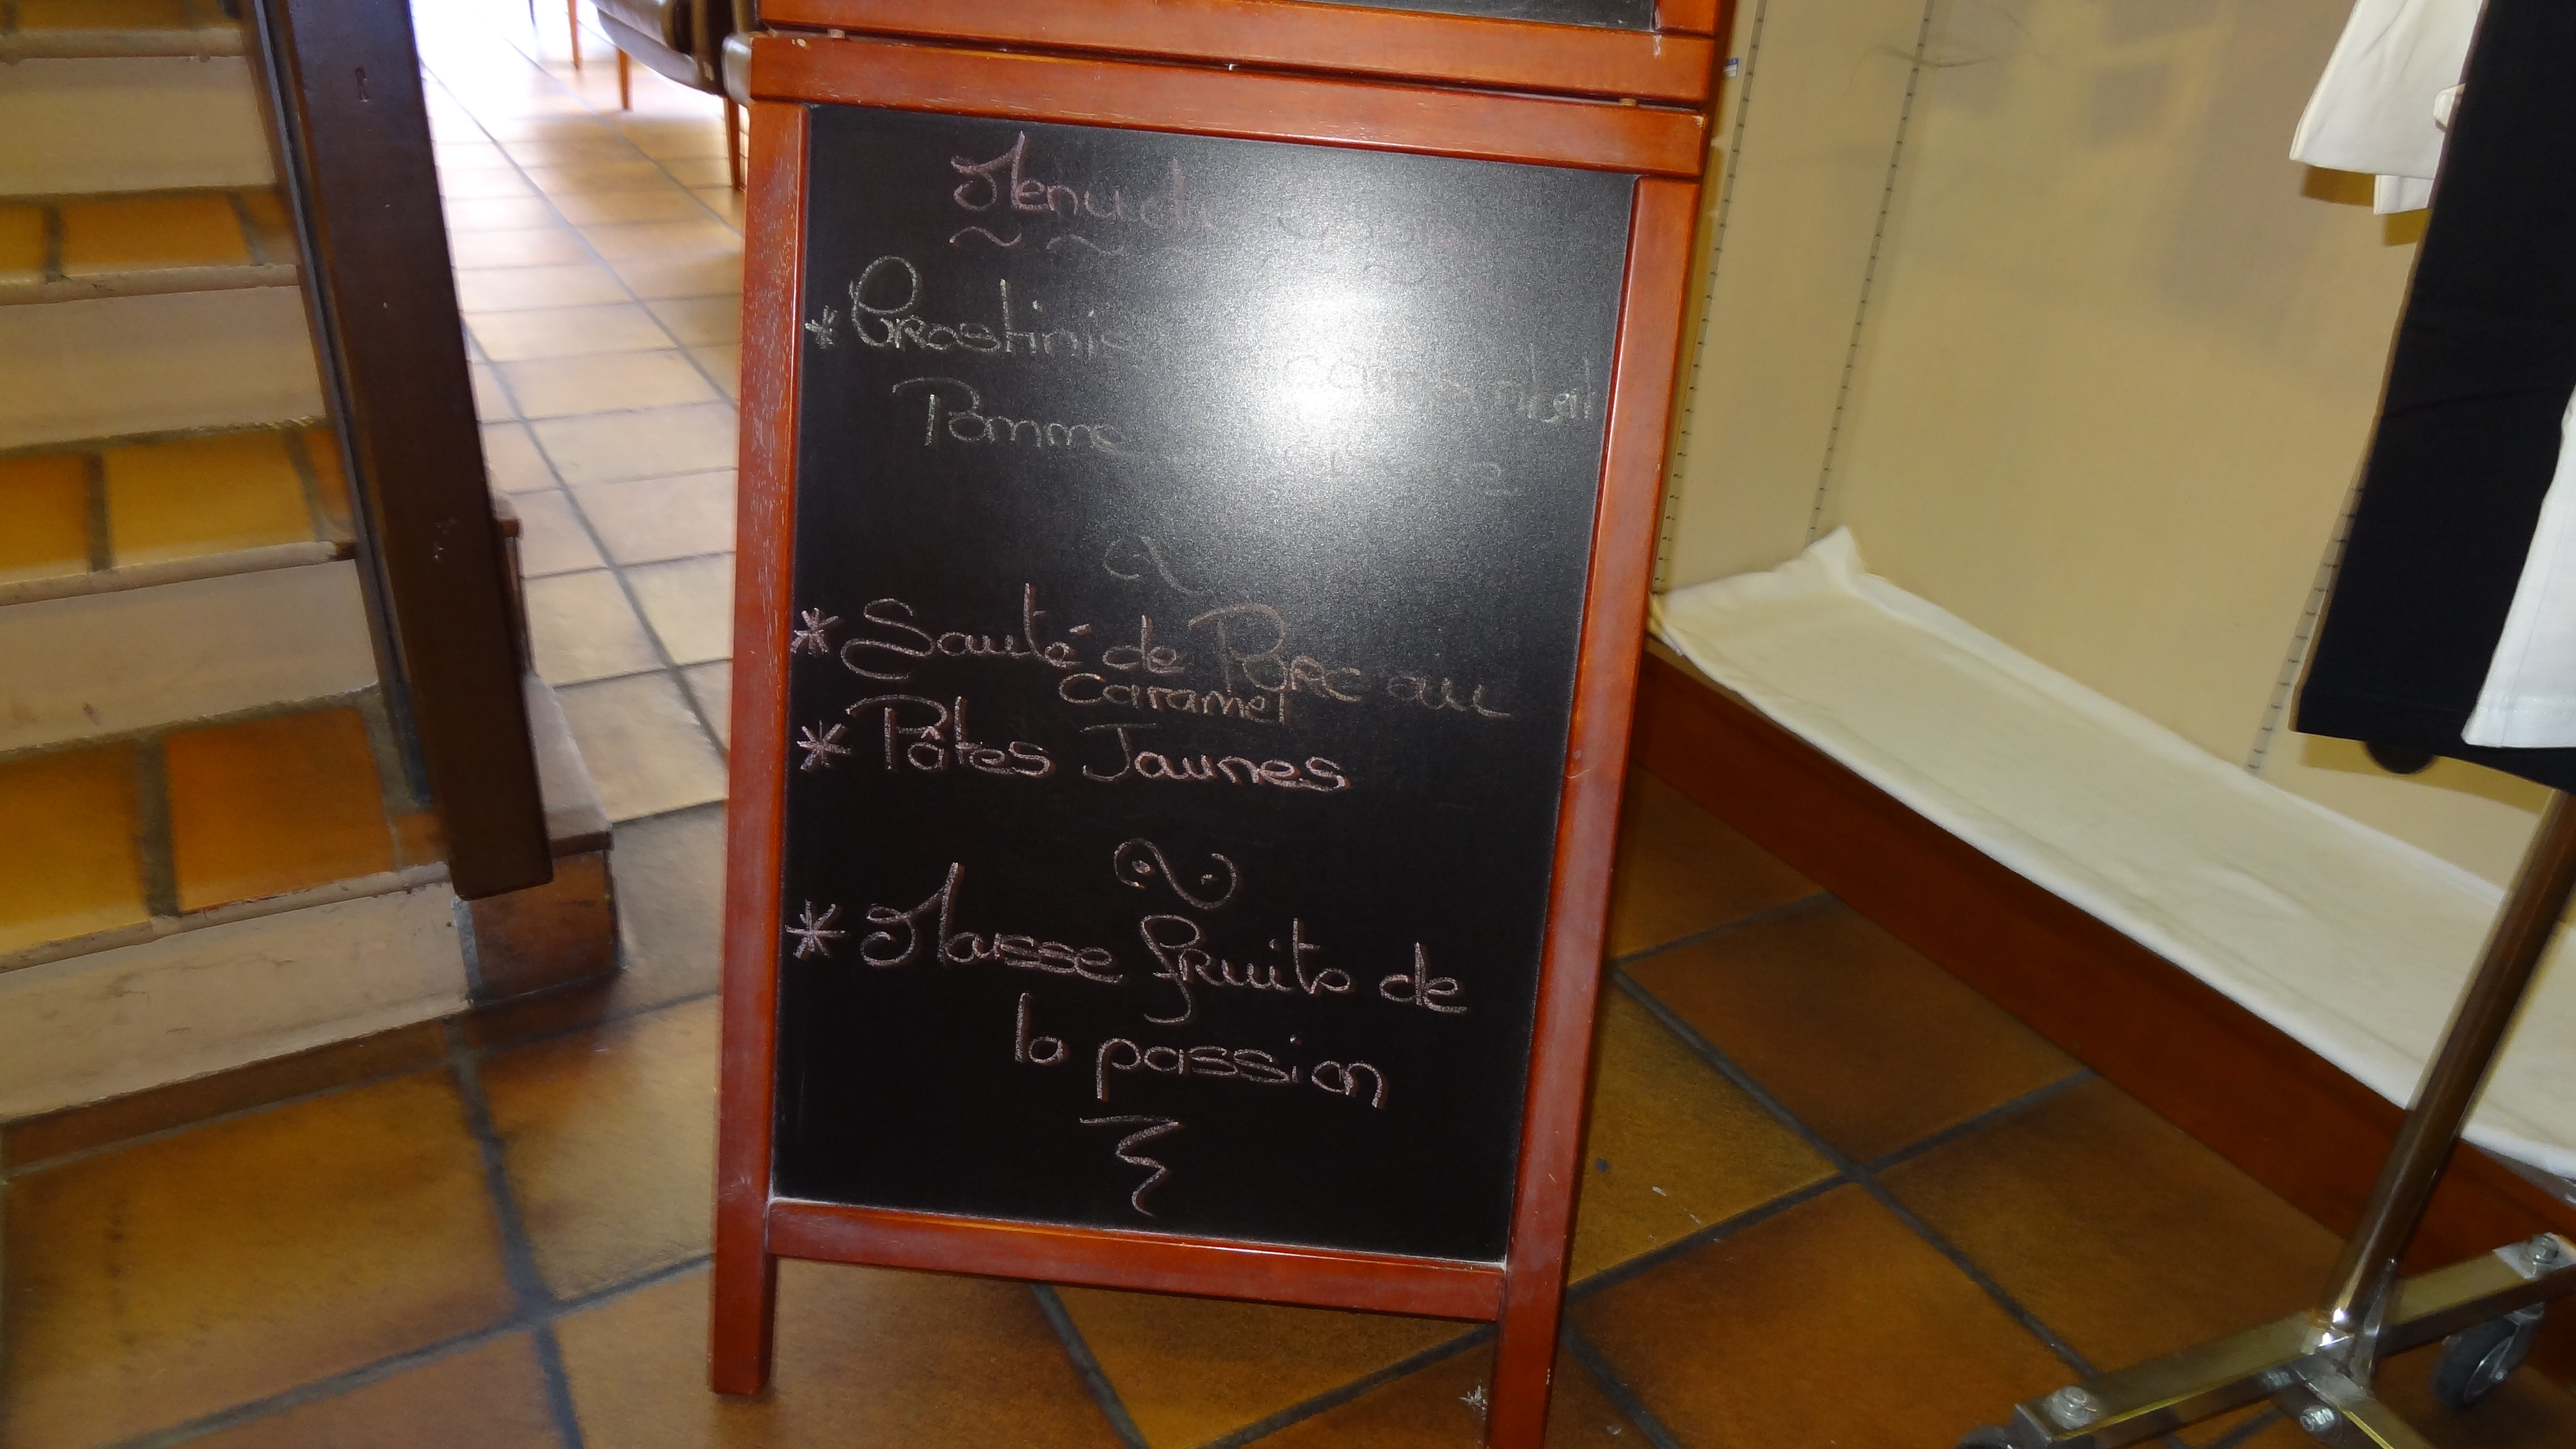 Menu du
* Crostinis
Pomme
* Sauté de Porc au
caramel
* Pâtes Jaunes
* Mousse fruits de
la passion